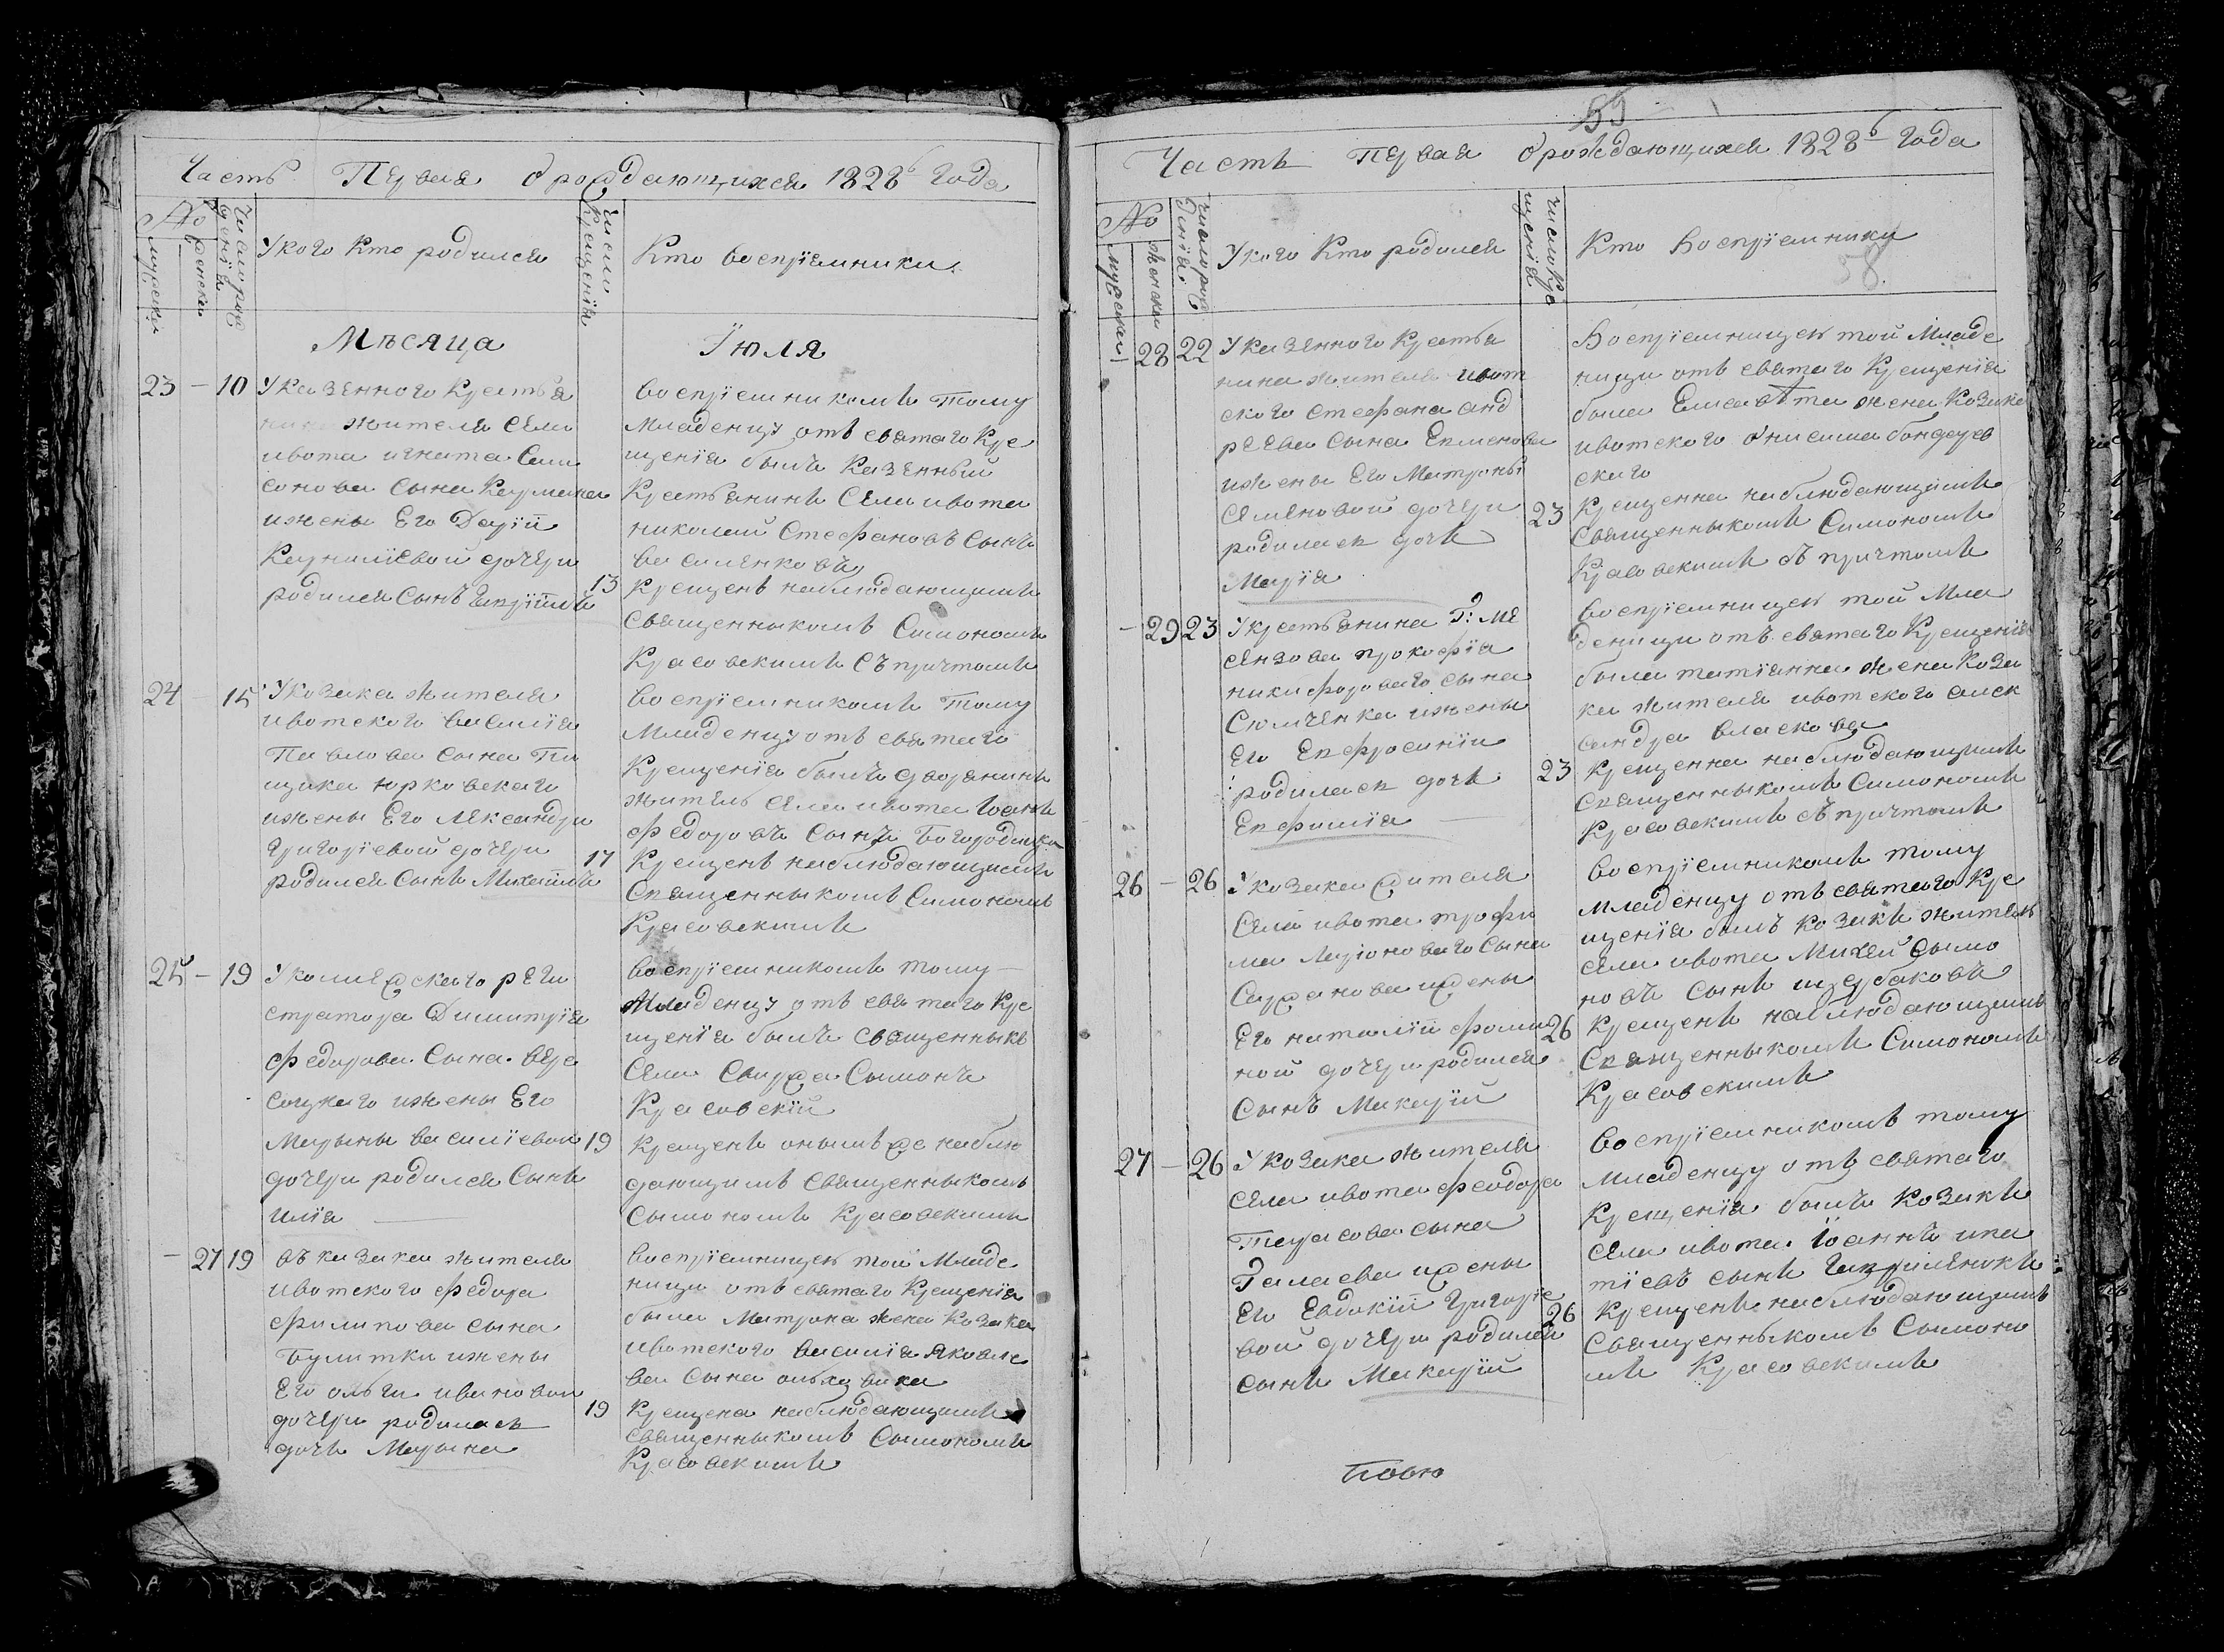 Часть Первая о рождающихся 1828го Года
№
мужеска
женска
Число рож
денія
У кого Кто родился
Число
Крещенія
Кто воспріемники
Мѣсяца Іюля
23 – 10
Указенного Крестья
нина жителя Села
ивота игната Сам
сонова Сына Кермана
ижены Его Дарій
Корниліевой дочери
родился Сынъ Гавріилъ
13
Воспріемникомъ Тому
Младенцу отъ святаго Кре
щенія былъ Казенный
Крестьянинъ Села ивота
николай Стефановъ Сынъ
василенковъ
Крещенъ наблюдающимъ
Священныкомъ Симономъ
Красовскимъ Съ причтомъ
24 – 15
Укозака жителя
ивотского василія
Павлова Сына Пи
щика юрковскаго
ижены Его Александри
Григоріевой дочери
родился Сынъ Михаилъ
17
Воспріемникомъ Тому
Младенцу отъ святаго
Крещенія былъ дворянинъ
житель села ивота Іоаннъ
федоровъ Сынъ Богородицки
Крещенъ наблюдающимъ
Священныкомъ Симономъ
Красовскимъ
25 – 19
Уколлежскаго реги
стратора Димитрія
федорова Сына Вер
соцкаго ижены Его
Марыны василіевой
дочери родился Сынъ
илія
19
Воспріемникомъ тому
Младенцу отъ святаго Кре
щенія былъ Священныкъ
Села Свиржа Сымонъ
Красовскій
Крещенъ онымъ же наблю
дающимъ Священныкомъ
Сымономъ Красовскимъ
– 27 19
Въ казака жителя
ивотского федора
филипова сына
Булитки ижены
Его ольги ивановой
дочери родилась
дочь Марына
19
Воспріемницею той Младе
ници отъ святаго Крещенія
была Матрона жена Козака
ивотского василія яковле
ва Сына
Крещена наблюдающимъ
Священныкомъ Сымономъ
Красовскимъ
59
Часть Первая о рождающихся 1828го Года
№
мужеска
женска
число рож
денія
У кого Кто родился
число Кре
щенія
Кто Воспріемники
58
28 22
Указенного Крестья
нина жителя ивот
ского стефана анд
реева сына Евменова
ижены Его Матроны
Семеновой дочери
родилась дочь
Марія
23
Воспріемницею той Младе
ници отъ святаго Крещенія
была Елисавѣта жена Козака
ивотского онисима бондарев
ского
Крещенна наблюдающимъ
Священныкомъ Симономъ
Красовскимъ съ причтомъ
– 29 23
Укрестьянина Г: Ме
сензова прокофія
никифороваго сына
Сюмченка ижены
Его Евфросиніи
родилась дочь
Евфимія
23
Воспріемницею той Мла
деници отъ святаго Крещенія
была татіянна жена Коза
ка жителя ивотского алек
сандра власкова
Крещенна наблюдающимъ
Священныкомъ Симономъ
Красовскимъ съ причтомъ
26 – 26
Укозака жителя
Села ивота трофи
ма Ларіоноваго Сына
Саржанова ижены
Его наталіи фоми
ной дочери родился
Сынъ Макарій
26
Воспріемникомъ тому
Младенцу отъ святаго Кре
щенія былъ козакъ житель
села ивота Михей Сымо
новъ сынъ щербаковъ
Крещенъ наблюдающимъ
Священныкомъ Симономъ
Красовскимъ
27 – 26
Укозака жителя
села ивота феодора
Тарасова сына
Галаева ижены
Его Евдокіи Григоріе
вой дочери родился
сынъ Макарій
26
Воспріемникомъ тому
Младенцу отъ святаго
Крещенія былъ Козакъ
села ивота Іоаннъ ипа
тіевъ сынъ Гавриленокъ
Крещенъ наблюдающимъ
Священныкомъ Сымоно
мъ Красовскимъ